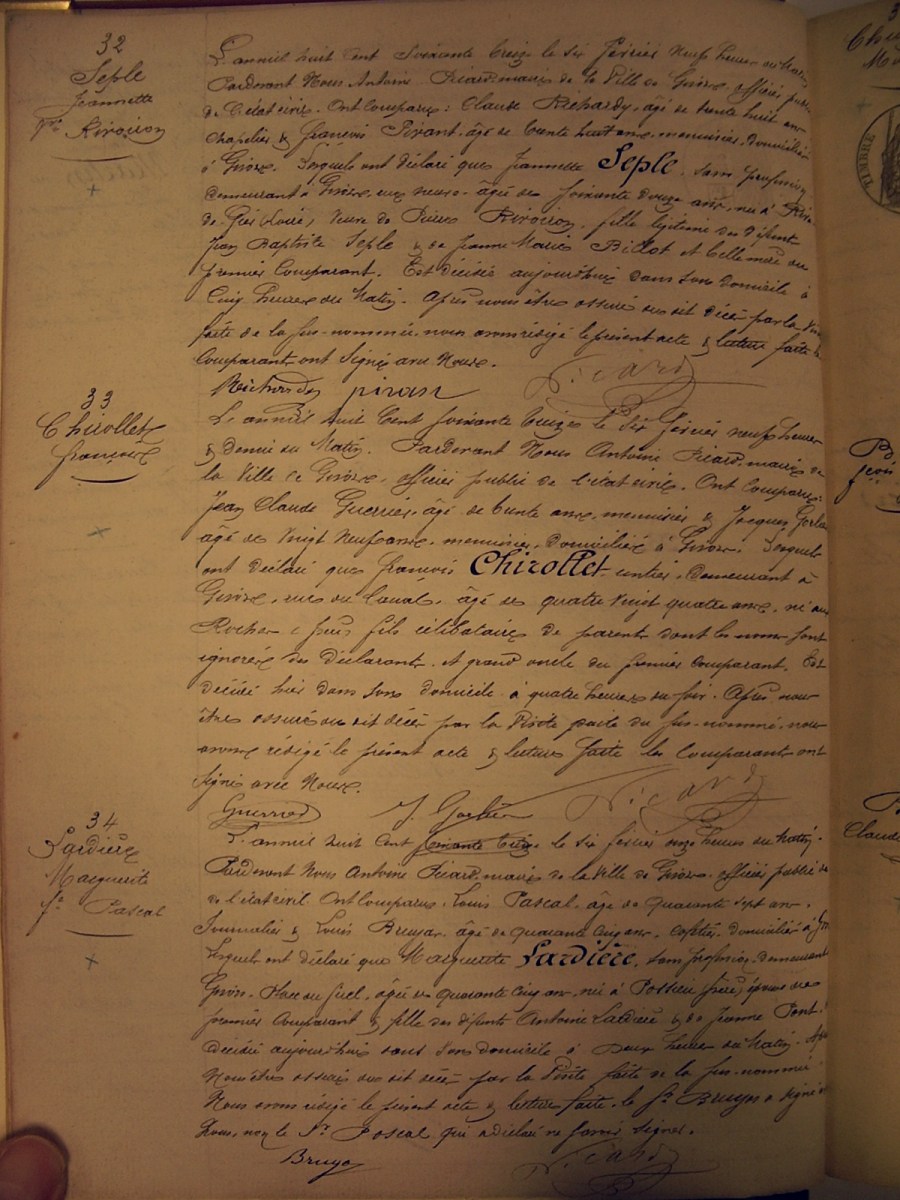 32
Seple
Jeannette
Vve Rivoiron
L'an mil huit cent soixante treize le six février neuf heures du matin
Pardevant Nous Antoine Picard, maire de la Ville de Givors, officier public
de l'état civil. Ont comparu: Claude Richardy, âgé de trente huit ans
chapelier & François Pirant, âgé de trente huit ans, menuisier, domiciliés
à Givors. Lesquels ont déclaré que Jeannette Seple, sans profession
demeurant à Givors, rue neuve, âgée de soixante douze ans, née à Rive
de Gier Loire, veuve de Pierre Rivoiron, fille légitime des défunts
Jean Baptiste Seple & de Jeanne Marie Billot et belle mère du
premier Comparant. Est décédée aujourd'hui dans son domicile à
Cinq heures du Matin. Après nous être assuré du dit décès par la visite
faite de la sus-nommée nous avons rédigé le présent acte & lecture faite les
Comparant ont signé avec Nous.
Richardy piran Picard
33
Chirollet
françois
L'an mil huit Cent soixante treize le Six février neuf heures
& demie du Matin. Pardevant Nous Antoine Picard, maire de
la Ville de Givors, officier public de l'état civil. Ont Comparu:
Jean Claude Guerrier, âgé de trente ans, menuisier & Jacques
âgé de Vingt Neuf ans, menuisier, domiciliés à Givors. Lesquels
ont déclaré que François Chirollet, rentier, demeurant à
Givors, rue du Canal, âgé de quatre vingt quatre ans, né au
Rocher fils célibataire de parent dont les noms sont
ignorés des déclarant et grand oncle du premier comparant. Est
décédé hier dans son domicile à quatre heures du soir. Après nous
être assuré du dit décès par la Visite faite du sus-nommé, nous
avons rédigé le présent acte & lecture faite les Comparant ont
signé avec Nous.
Guerrier Picard
34
Lardière
Marguerite
fe Pascal
L'an mil huit Cent soixante treize le six février onze heures du Matin.
Pardevant Nous Antoine Picard, maire de la Ville de Givors, officier public de
de l'état civil Ont Comparu: Louis Pascal, âgé de quarante sept ans.
Journalier & Louis Bruyas, âgé de quarante cinq ans, cafetier, domiciliés à
Lesquels ont déclaré que Marguerite Lardière, sans profession, demeurant
Givors, Place du Suel, âgée de quarante cinq ans, née à Possieu Isère, épouse du
premier Comparant & fille des défunts Antoine Lardière & de Jeanne Pont.
décédée aujourd'hui dans son domicile à Deux heures du Matin.
Nous être assuré du dit décès par la Visite faite de la sus-nommée
Nous avons rédigé le présent acte & lecture faite, le Sr Bruyas a signé
Nous, non le Sr Pascal qui a déclaré ne savoir signer.
Bruya Picard
TIMBRE
Claude